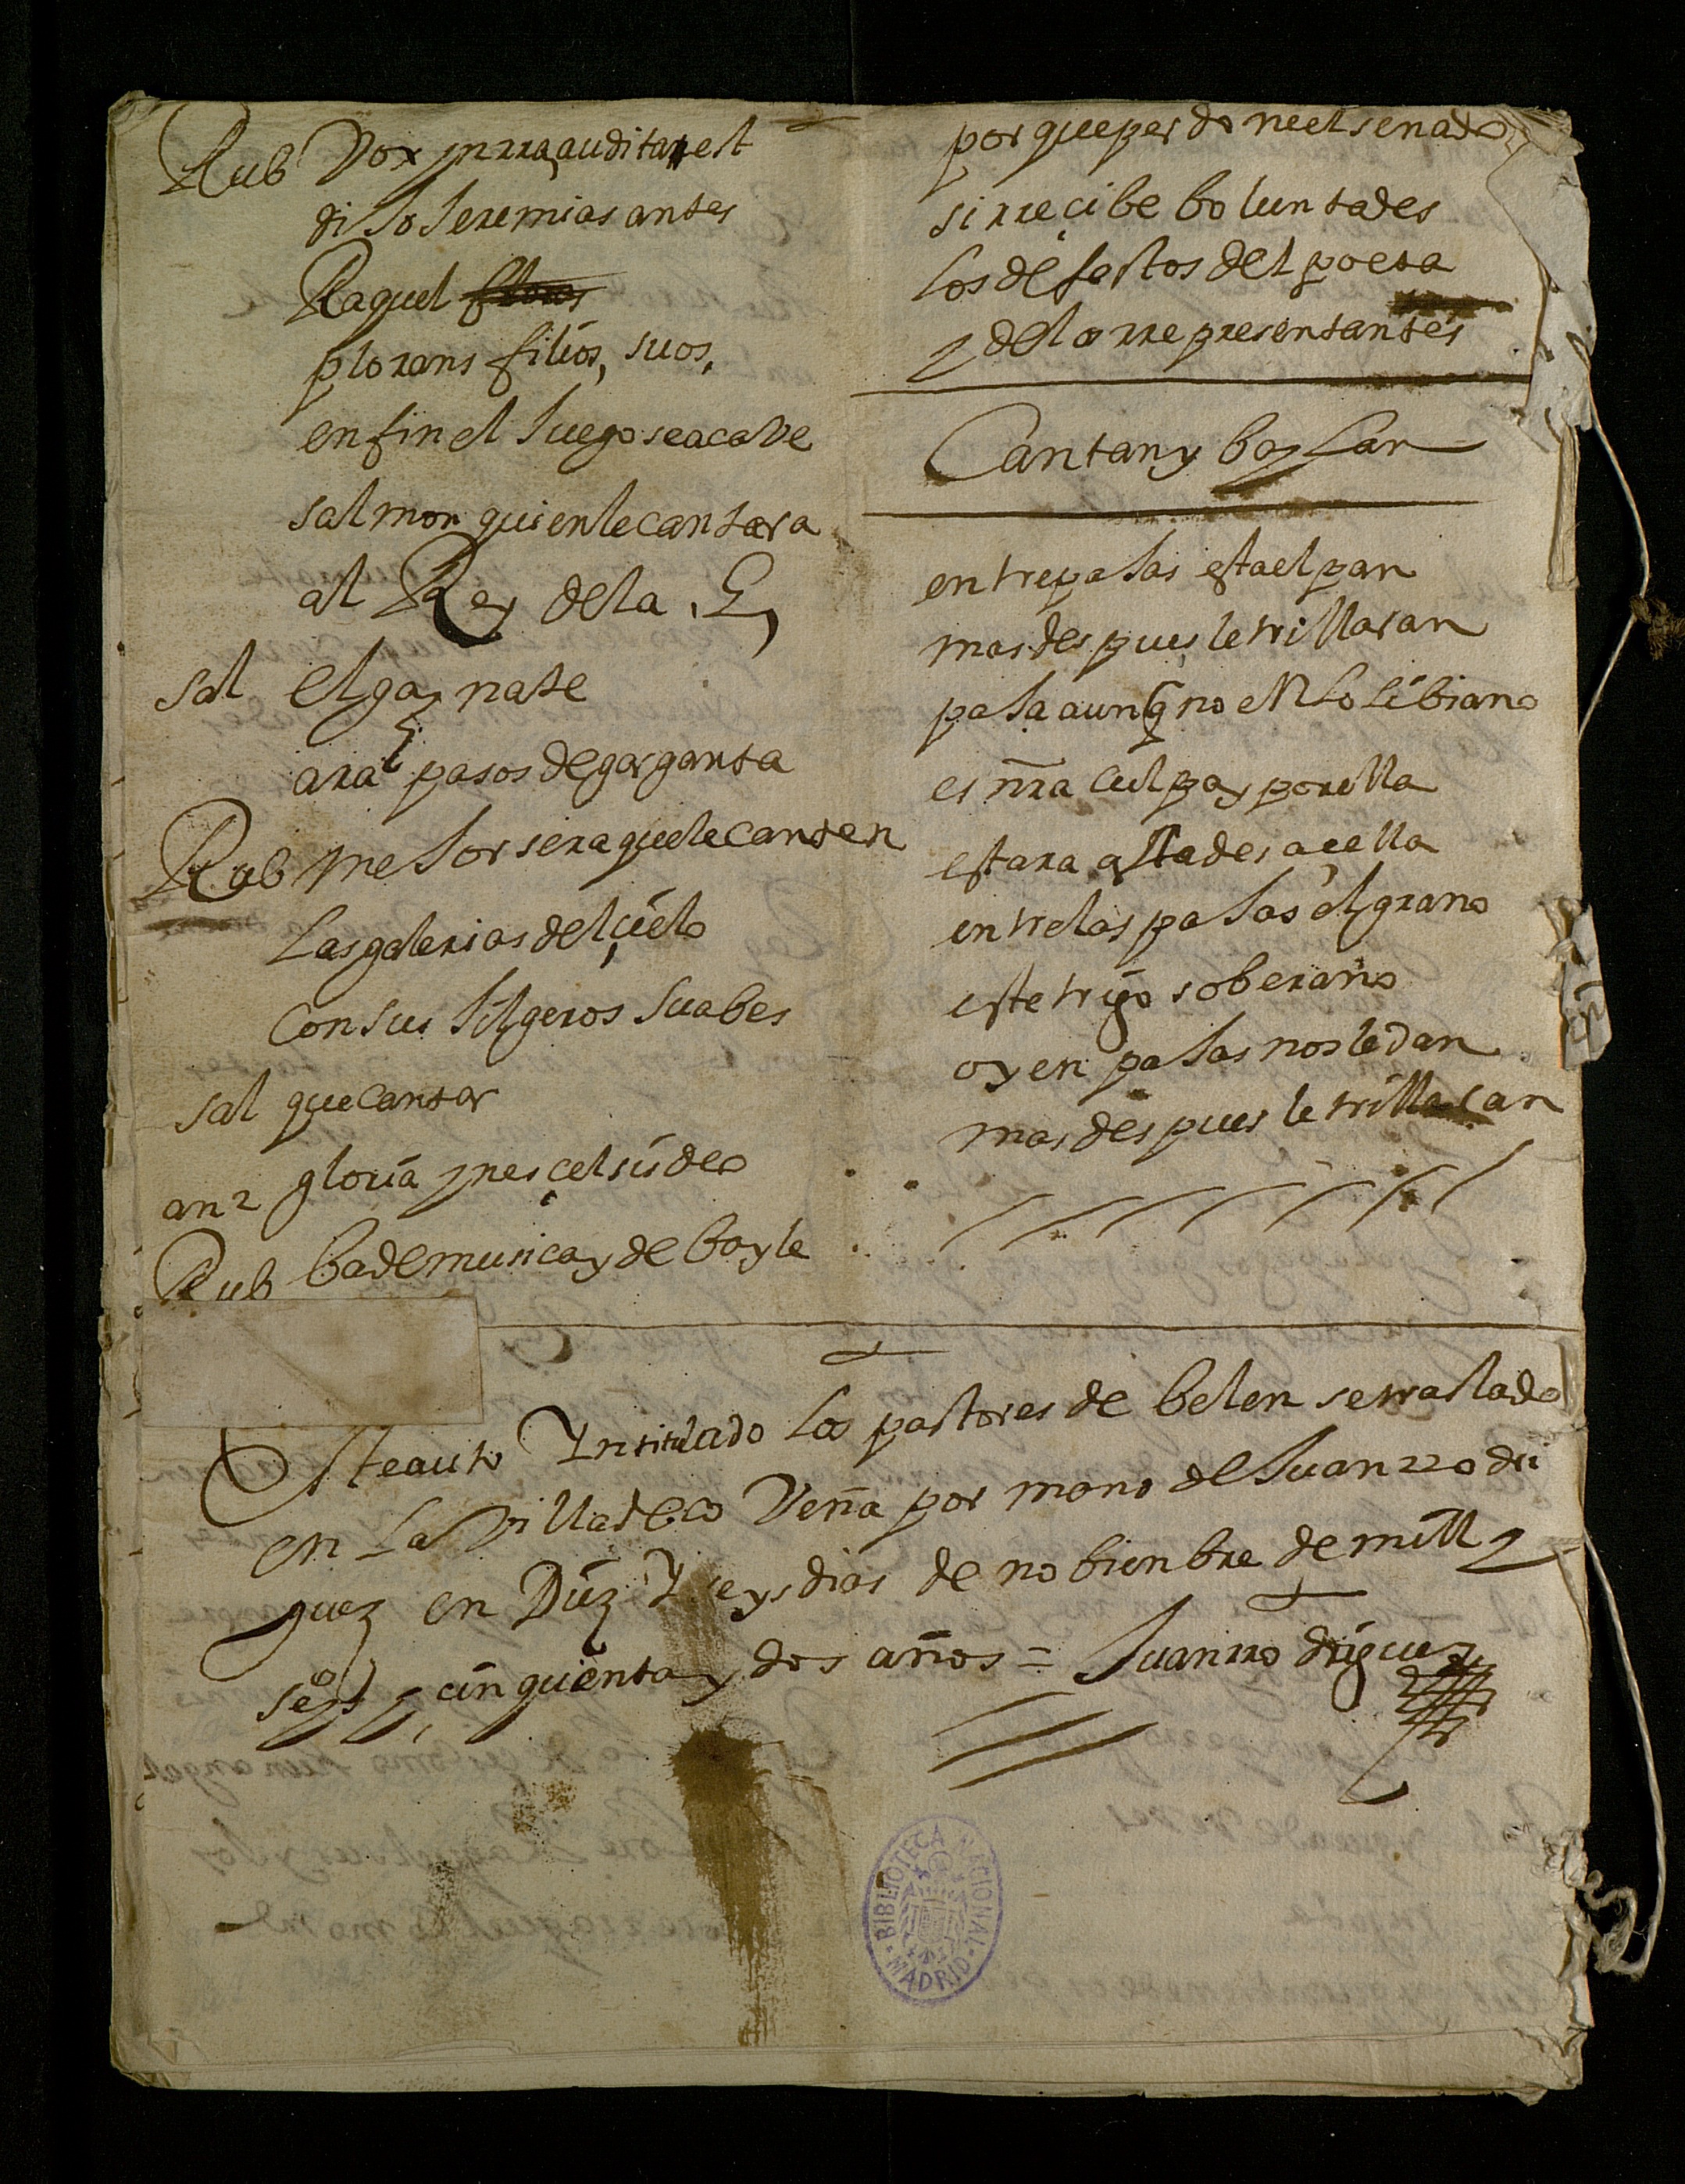 Rub Vox yn rra, audita est
diJo Jeremias antes
Raquel
plorans filios, suos,
en fin el Juego se acave
salmon quien le cantara
al Rey de la . G,
sal el gaznate
ara pasos de garganta
Rub meJor sera que le canten
las galerias del çielo
con sus Jilgeros suabes
sal que cantar
an2 gloria yn esçelsis deo
Rub ba de musica y de bayle
por que perdone el senado
si rreçibe boluntades
los defectos del poeta
y de lo rrepresentantes
Cantan y baylan
entre paJas esta el pan
mas despues le trillaran
paJa aunq no en lo libiano
es nr̄a culpa y por ella
estara asta desaçella
entre las paJas el grano
este trigo soberano
oy en paJas nos le dan
mas despues le trillaran
Este auto Yntitulado los pastores de belen se traslado
en la Villa de coVeña por mano de Juan rrodri
guez en Diez Y seys dias de nobienbre de mill y
seosº çinquenta y dos años = Juan rrodriguez
BIBLIOTECA NACIONAL
MADRID